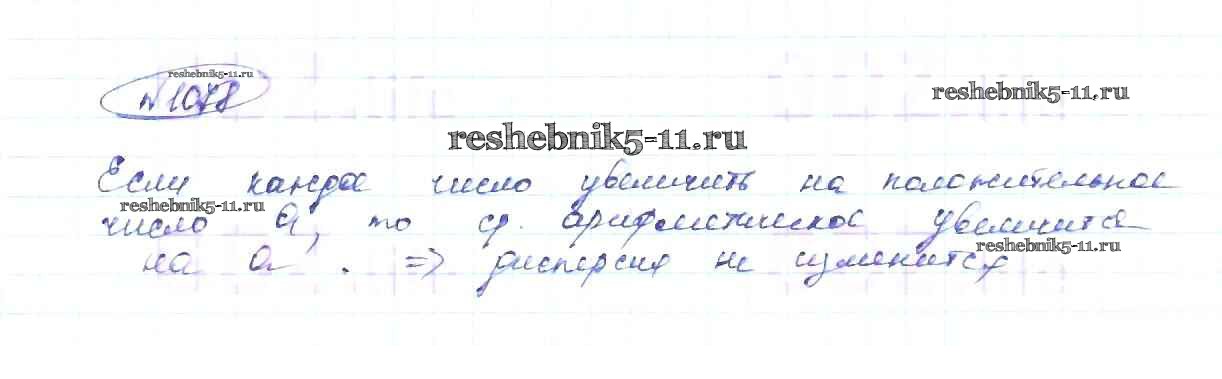 reshebnik5-11.ru
№1078
reshebnik5-11.ru
reshebnik5-11.ru
Если каждое число увеличить на положительное
reshebnik5-11.ru
число a, то ср. арифметическое увеличится
reshebnik5-11.ru
на a. => дисперсия не изменится